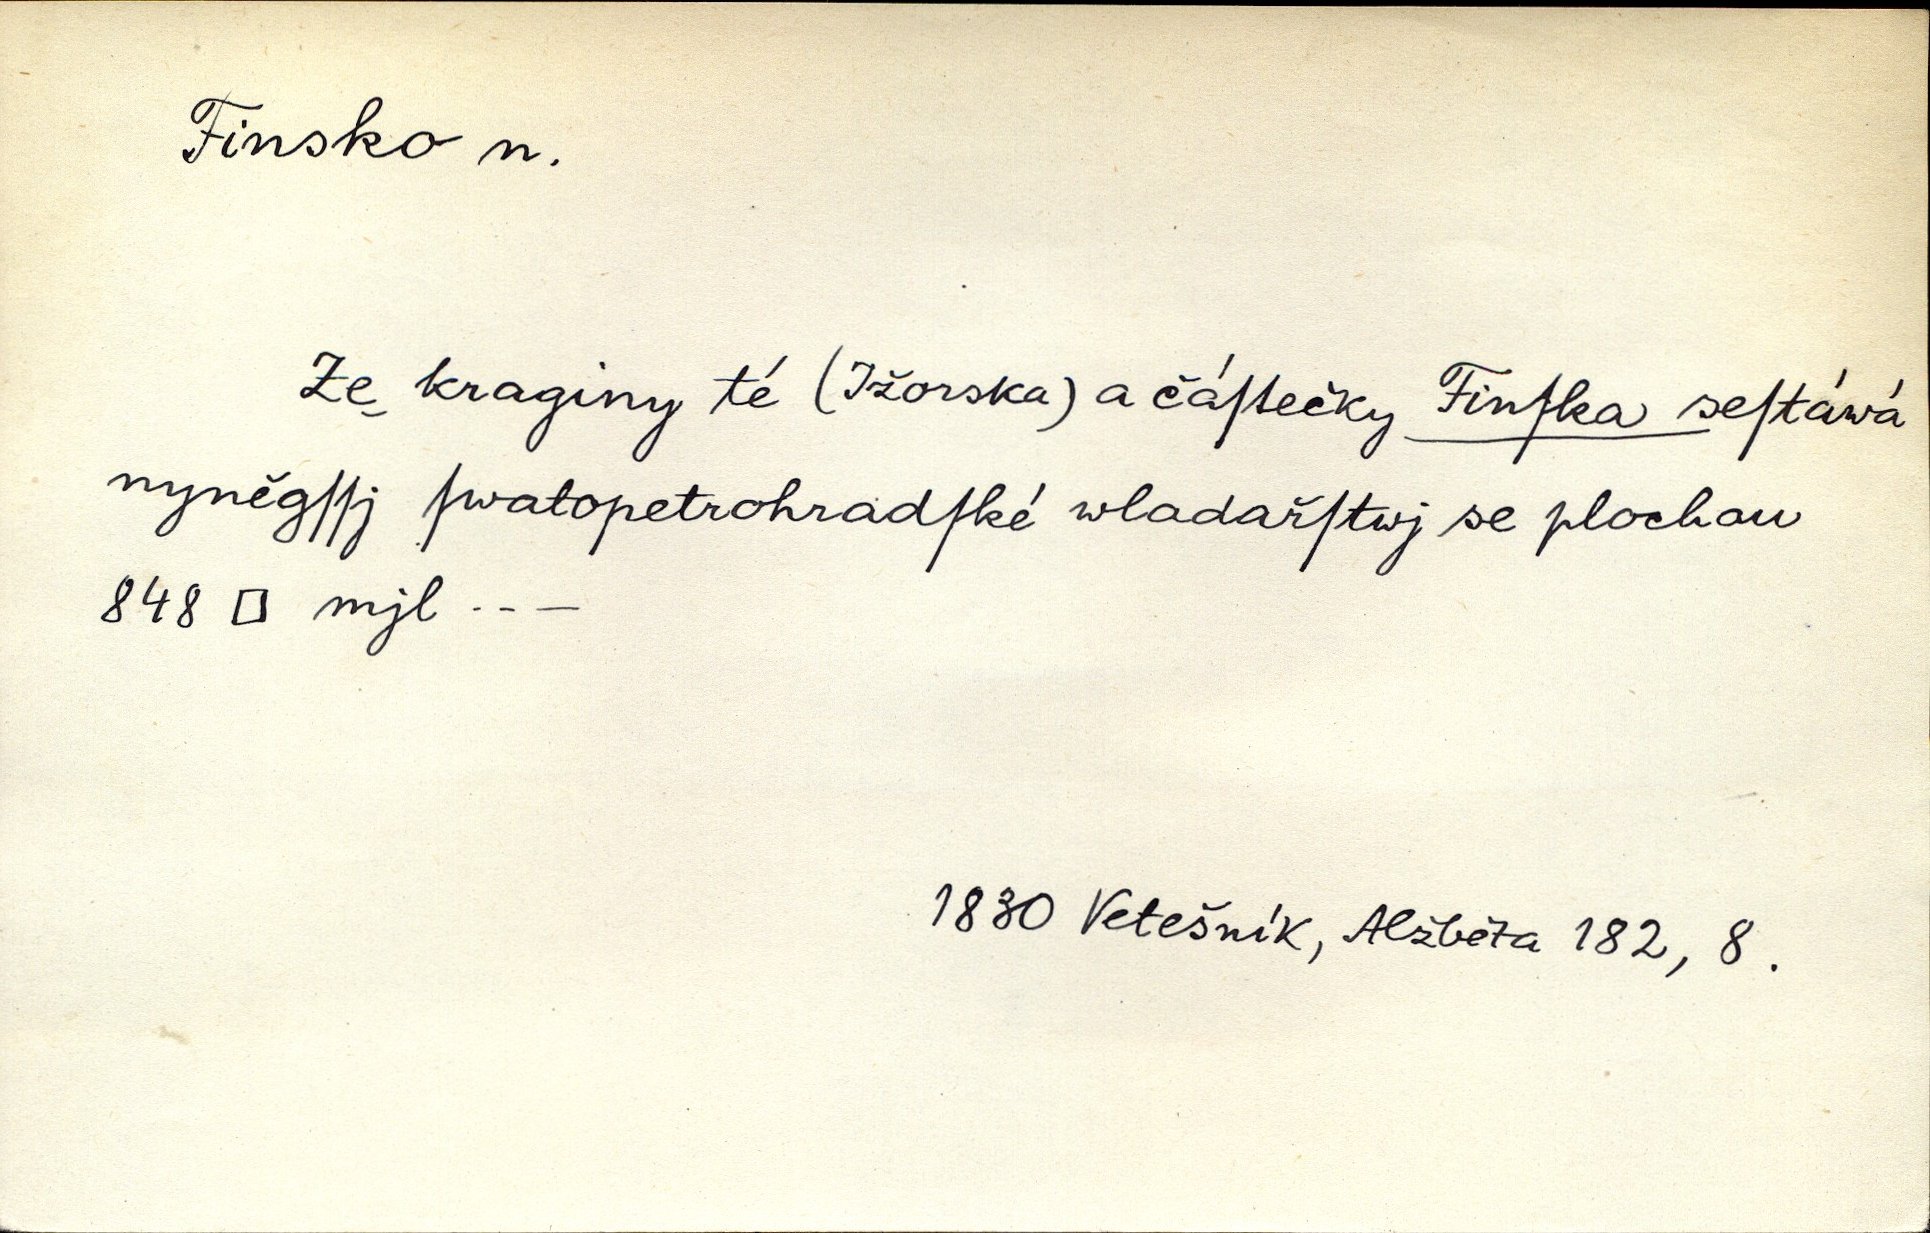 Finsko n.
Ze kraginy té (Ižorska) a čáſtečky Finſka seſtáwá
nyněgſſj ſwatopetrohradſké wladařſtwj se plochau
848 □ mjl ---
1830 Vetešník, Alžběta 182, 8.